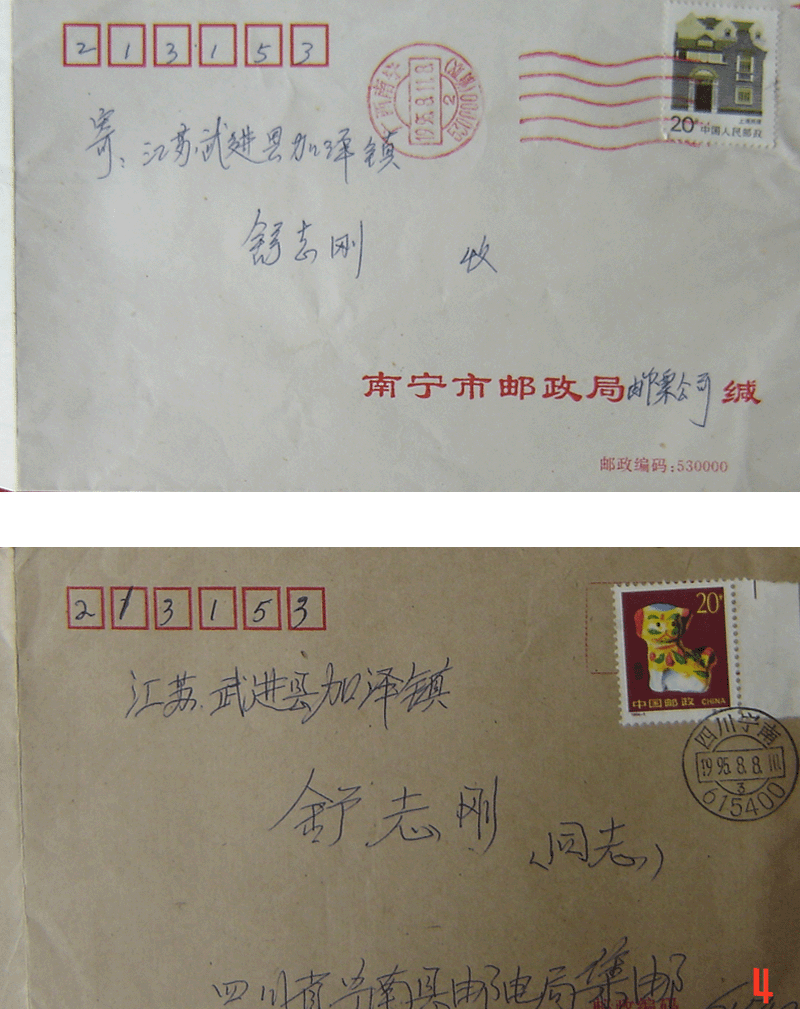 213153
广西南宁
1995.8.11.8
2
(邮购)530000
20分
上海民居
中国人民邮政
寄:江苏武进县加泽镇
舒志刚 收
南宁市邮政局邮票公司缄
邮政编码:530000
213153
20分
中国邮政 CHINA
四川宁南
1995.8.8.
3
615400
江苏武进县加泽镇
舒志刚(同志)
四川省宁南县邮电局集邮
邮政编码
4